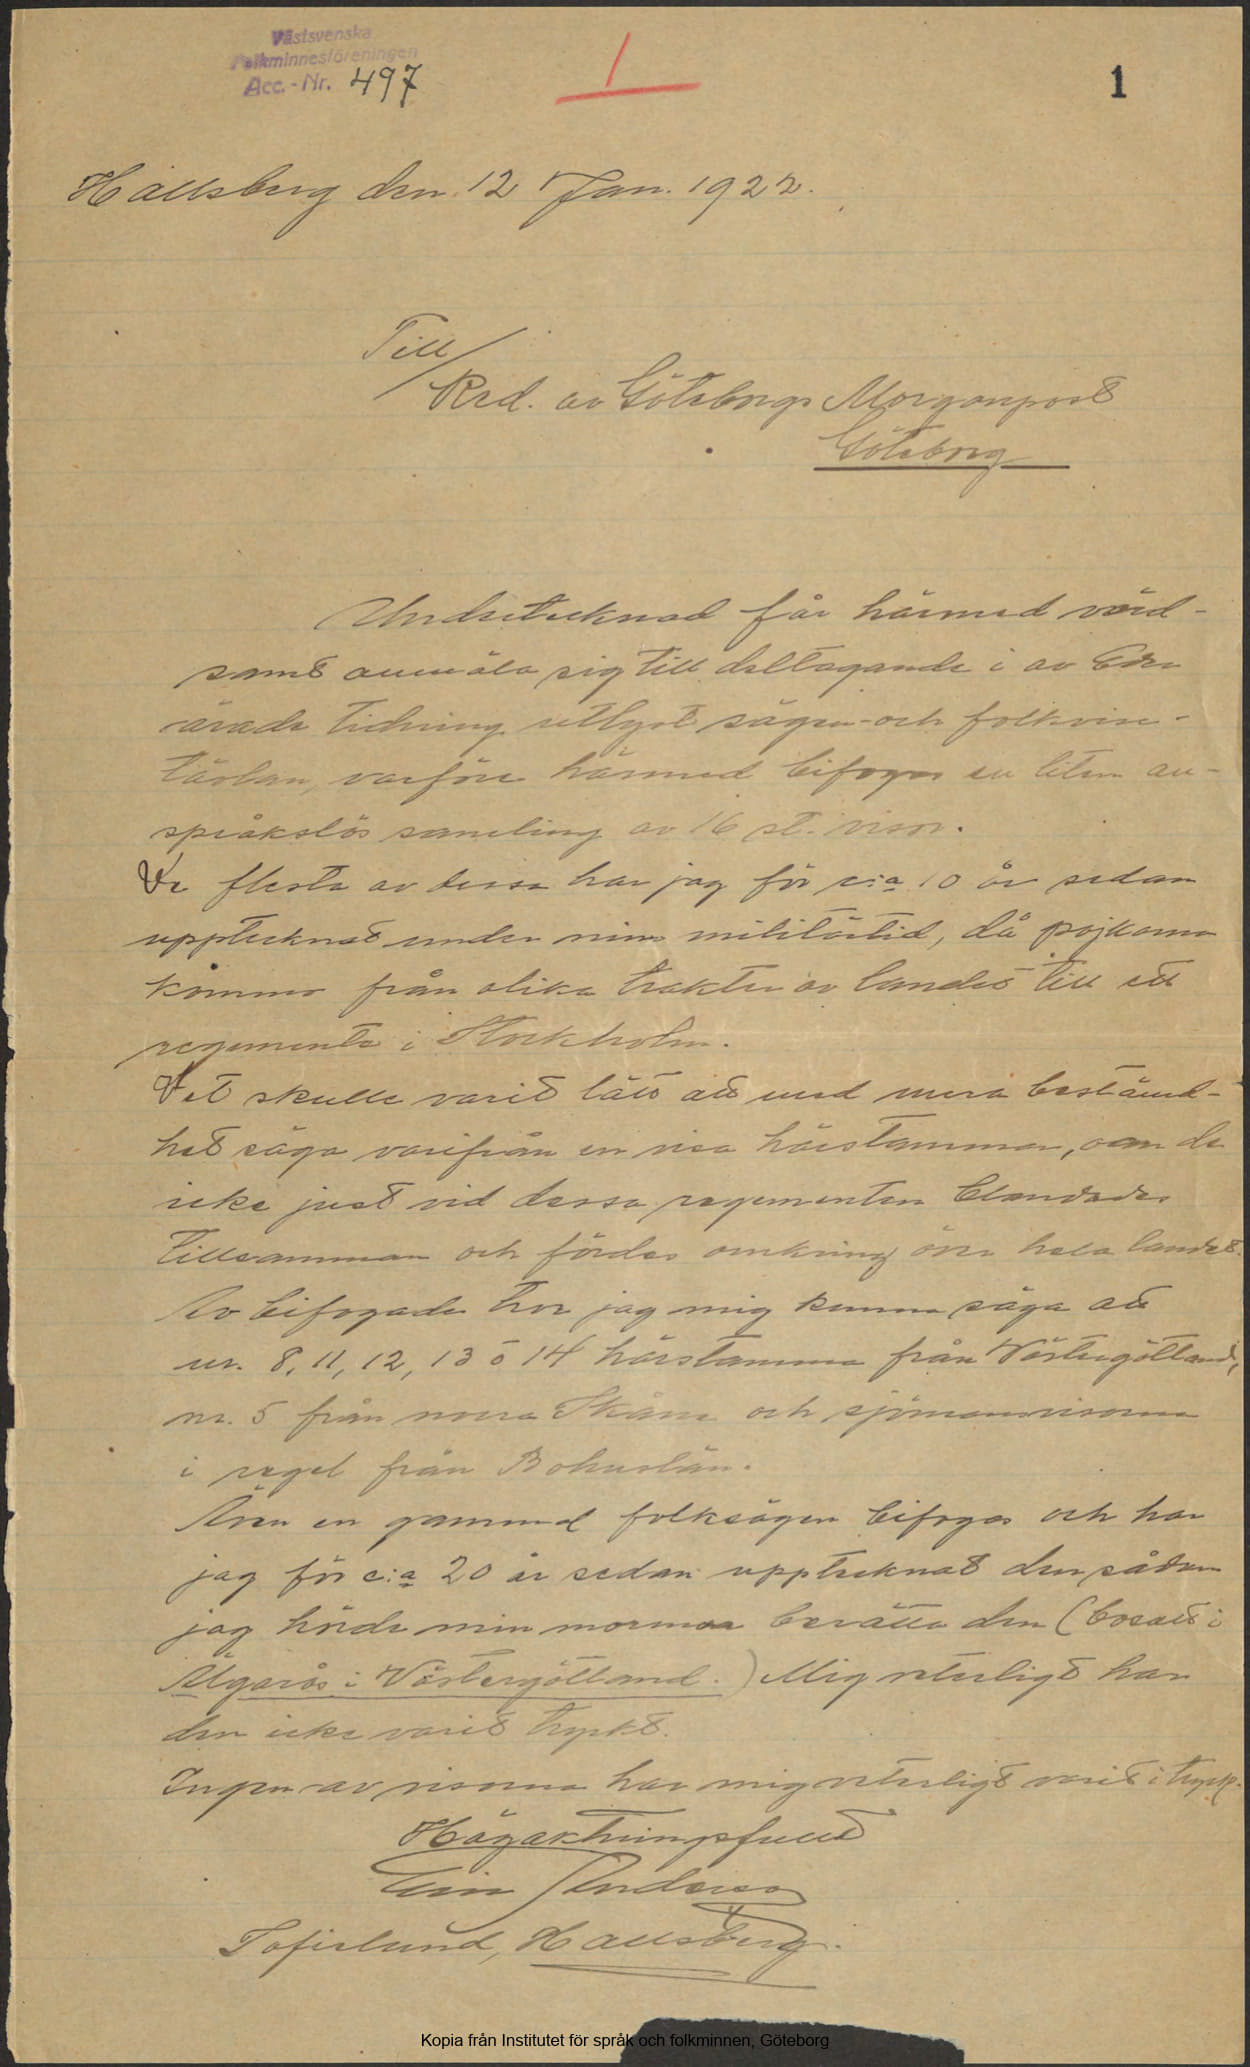 Västsvenska
Folkminnesföreningen
Acc.-Nr. 497
1
1
Hallsberg den 12 Jan. 1922.
Till
Red. av Göteborgs Morgonpost
Göteborg
Undertecknad får härmed vörd-
samt anmäla sig till deltagande i av Eder
ärade tidning utlyst sägen- och folkvise-
tävlan, varföre härmed bifogas en liten an-
språkslös samling av 16 st. visor.
De flesta av dessa har jag för c:a 10 år sedan
upptecknat under min militärtid, då pojkarna
kommo från olika trakter av landet till ett
regemente i Stockholm.
Det skulle varit lätt att med mera bestämd-
het säga varifrån en visa härstammar, om de
icke just vid dessa regementen blandades
tillsamman och fördes omkring över hela landet.
Av bifogade tror jag mig kunna säga att
nr. 8, 11, 12, 13 o 14 härstamma från Västergötland,
nr. 5 från norra Skåne och sjömansvisorna
i regel från Bohuslän.
Även en gammal folksägen bifogas och har
jag för c:a 20 år sedan upptecknat den sådan
jag hörde min mormor berätta den (bosatt i
Älgarås i Västergötland.) Mig veterligt har
den icke varit tryckt.
Ingen av visorna har mig veterligt varit i tryck.
Högaktningsfullt
Anderson
Sofielund, Hallsberg.
Kopia från Institutet för språk och folkminnen, Göteborg